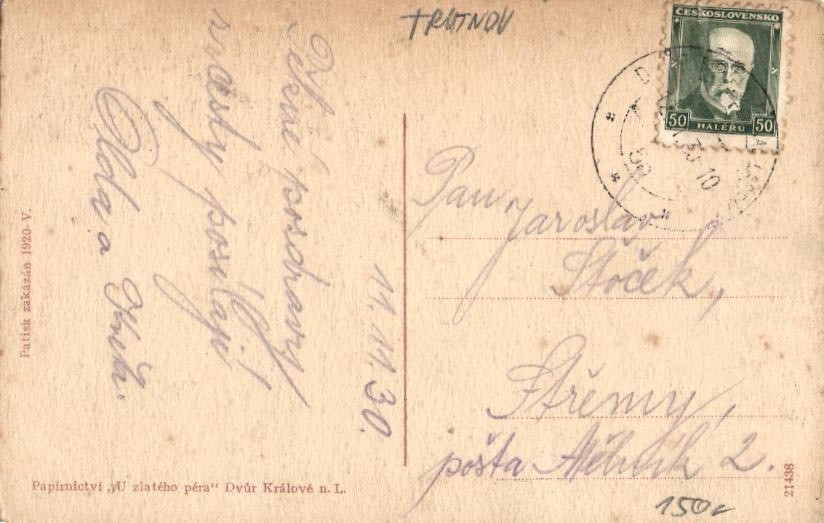 TRUTNOV
ČESKOSLOVENSKO
50 HALÉŘŮ 50
Pěkné pozdravy
z cesty posílají
Olda a
11.11.30.
Pan Jaroslav
Stoček,
Střemy,
pošta Mělník 2.
Patisk zakázán 1920-V.
Papírnictví „U zlatého péra“ Dvůr Králové n. L.
21438
150,-